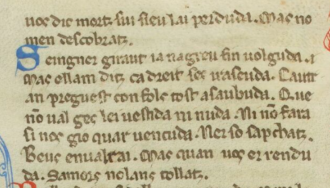 uos dic mortz sui sieu lai perduda. Mas no
men descobratz.
Seingner giraut ia nagreu fin uolguda. i
Mas ollam ditz ca dreit ses irascuda. Cautr
an preguest con fols tost asaubuda. Que
nō ual ges lei uestida ni nuda. Ni nō fara
si nos gic quar uencuda. Ner so sapchatz.
Beus enualrai. Mas quan uos er rendu
da. Samors nolans tollatz.